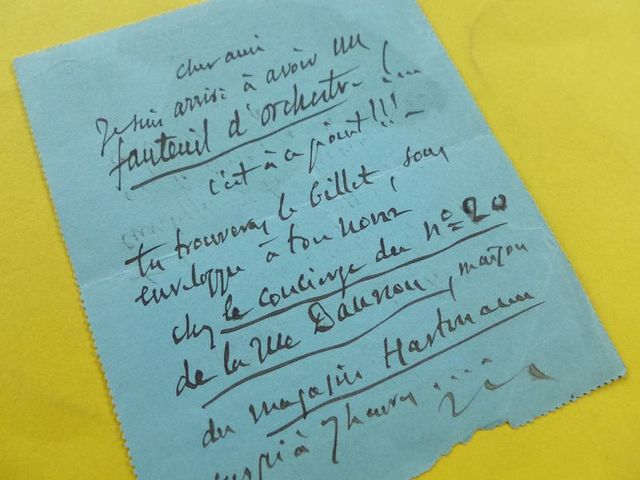 cher ami
Je suis arrivé à avoir un
fauteuil d'orchestre (...
c'est à ce point!!! –
tu trouveras le billet, sous
enveloppe à ton nom
chez le concierge du nº 20
de la rue Daunou, maison
du magasin Hartmann
jusqu'à 7 heures ...